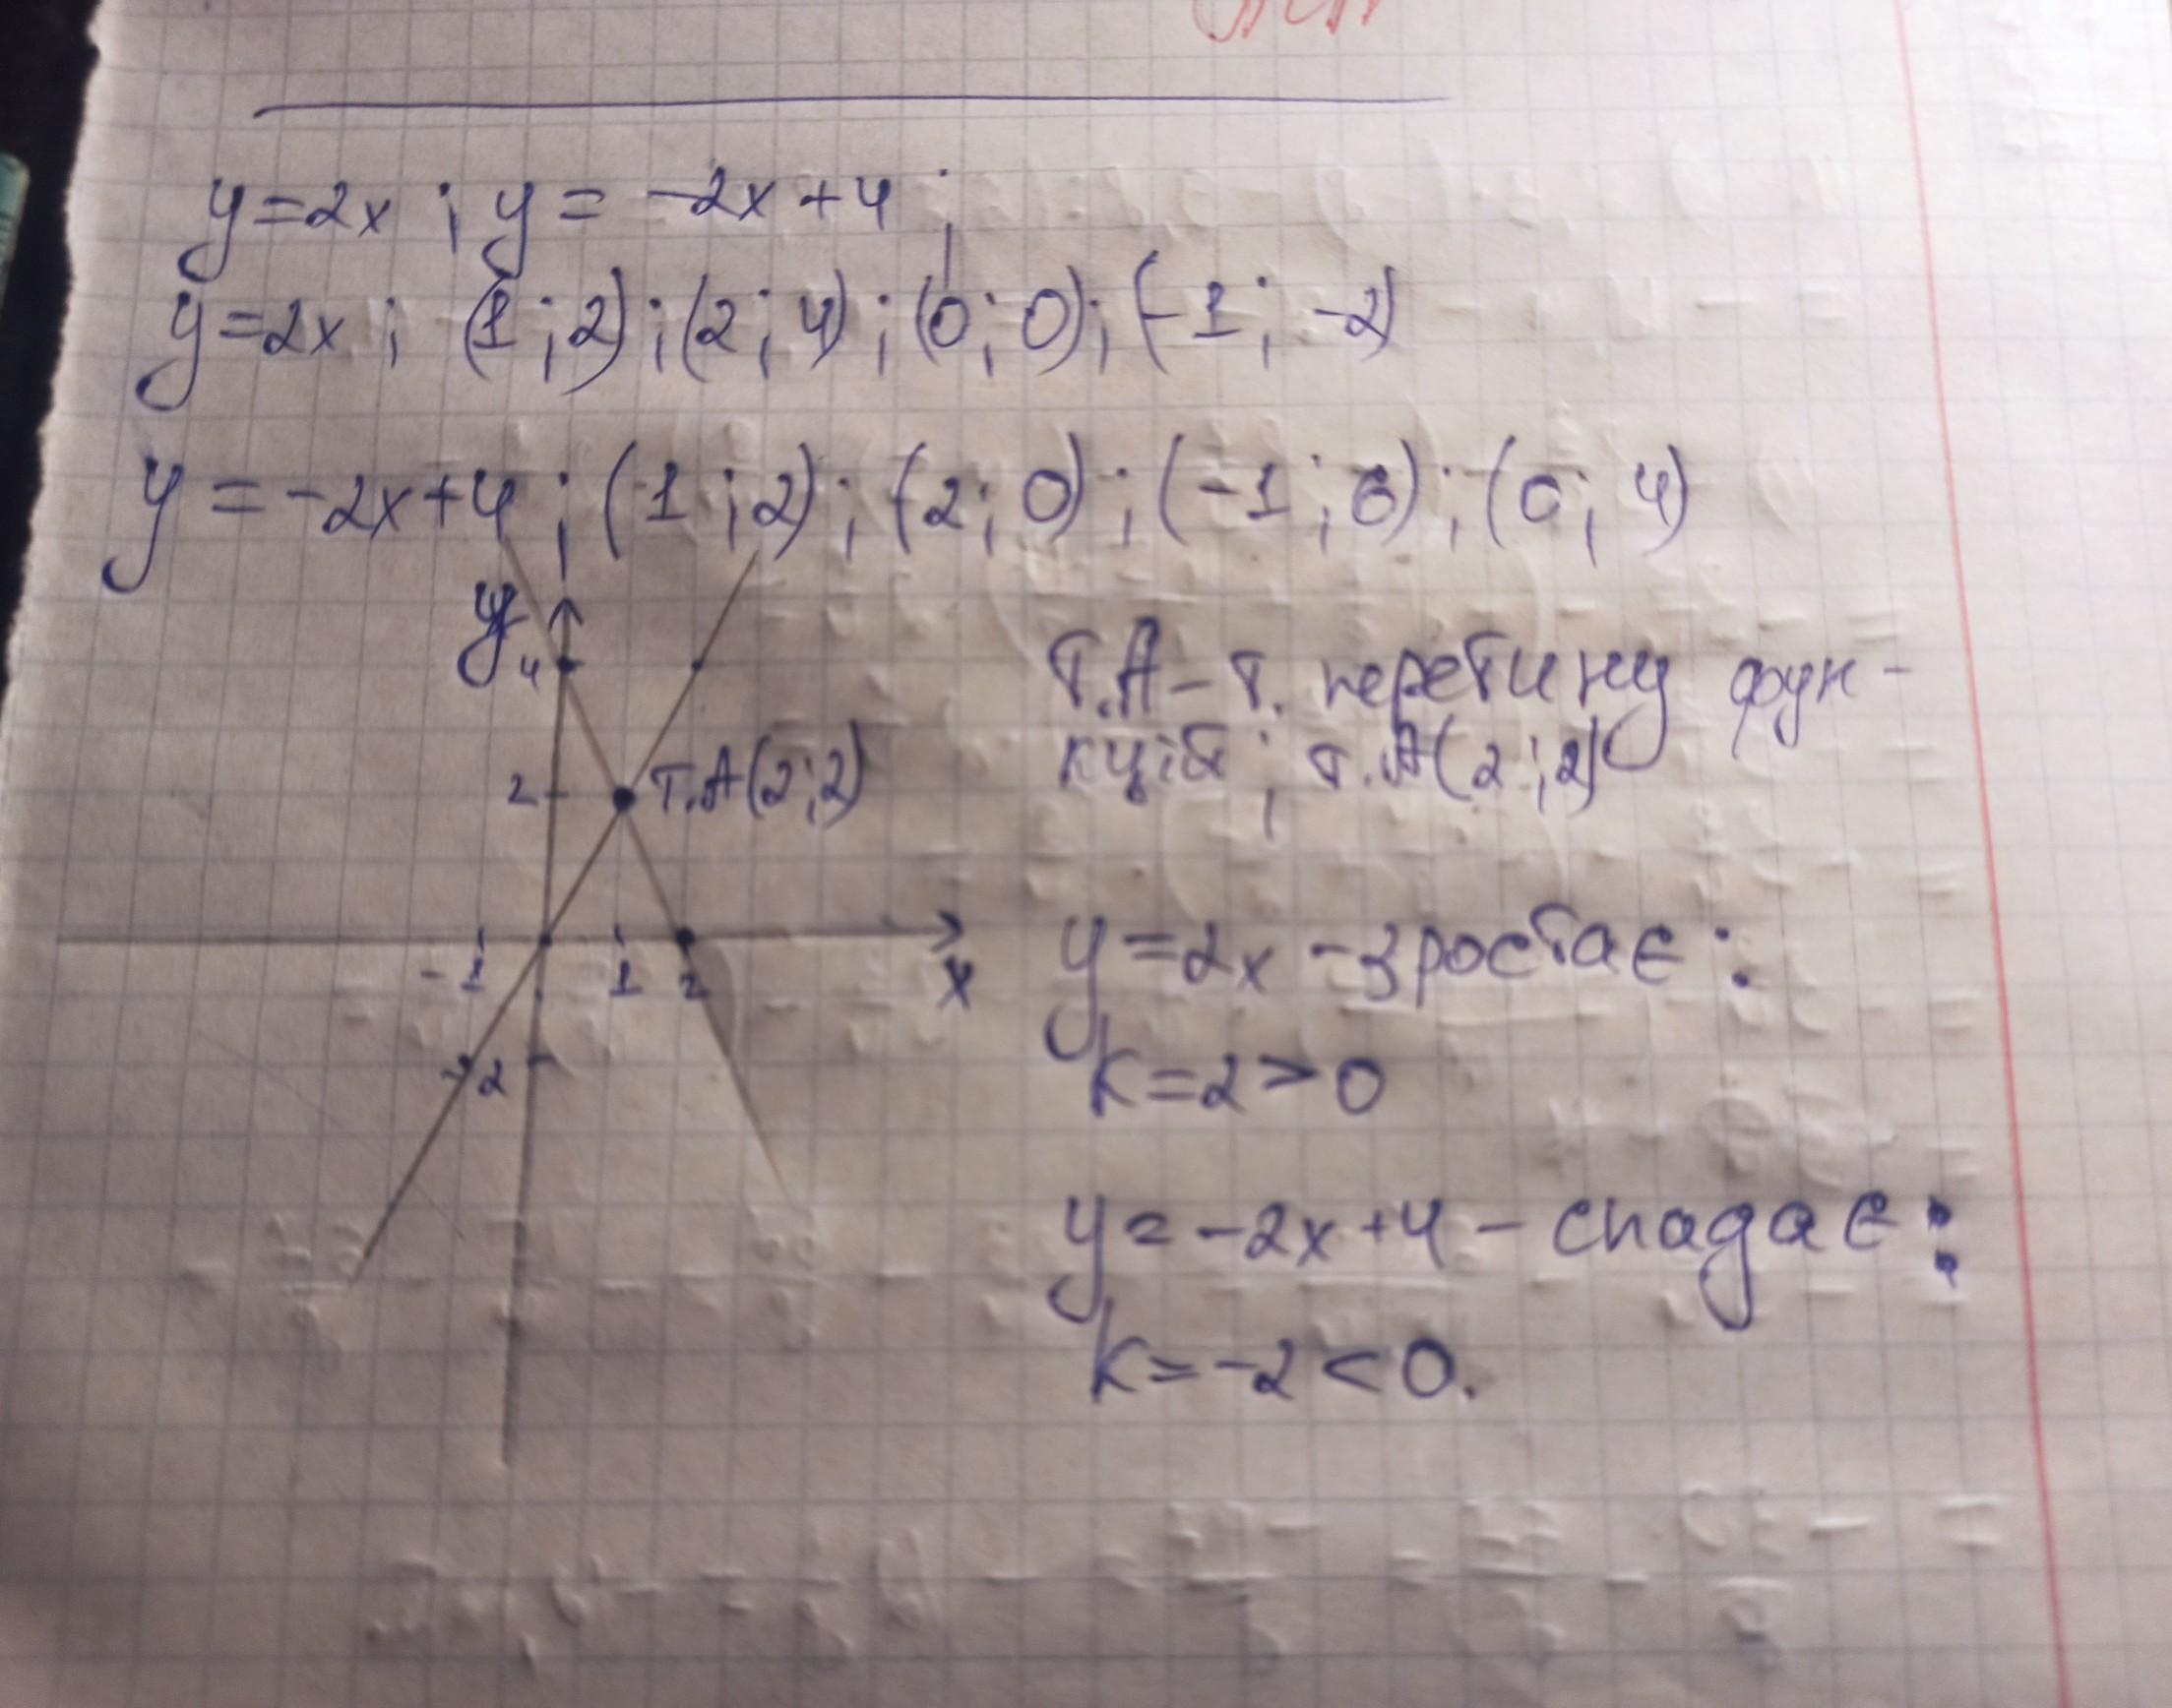 y=2x ; y = -2x+4 ;
y=2x ; (1 ; 2) ; (2 ; 4) ; (0 ; 0) ; (-1 ; -2)
y = -2x+4 ; (1 ; 2) ; (2 ; 0) ; (-1 ; 6) ; (0 ; 4)
y
4
2
т.А(2;2)
-1
1
2
x
-2
т.А – т. перетину фун-
кцій ; т.А(2 ; 2)
y = 2x - зростає :
k = 2 > 0
y = -2x +4 - спадає :
k = -2 < 0.